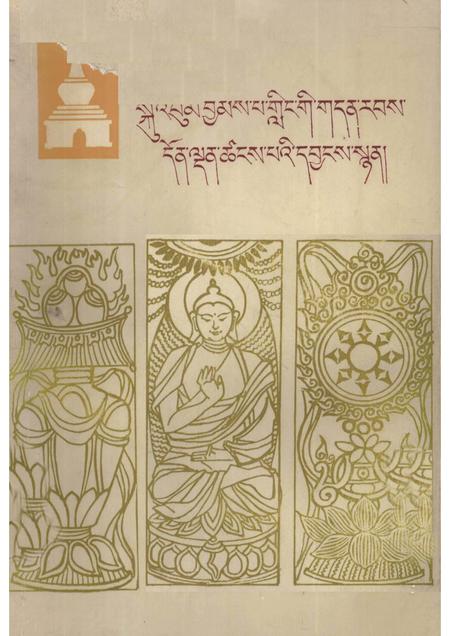 སྐུ་འབུམ་བྱམས་པ་གླིང་གི་གདན་རབས་
དོན་ལྡན་ཚངས་པའི་དབྱངས་སྙན།